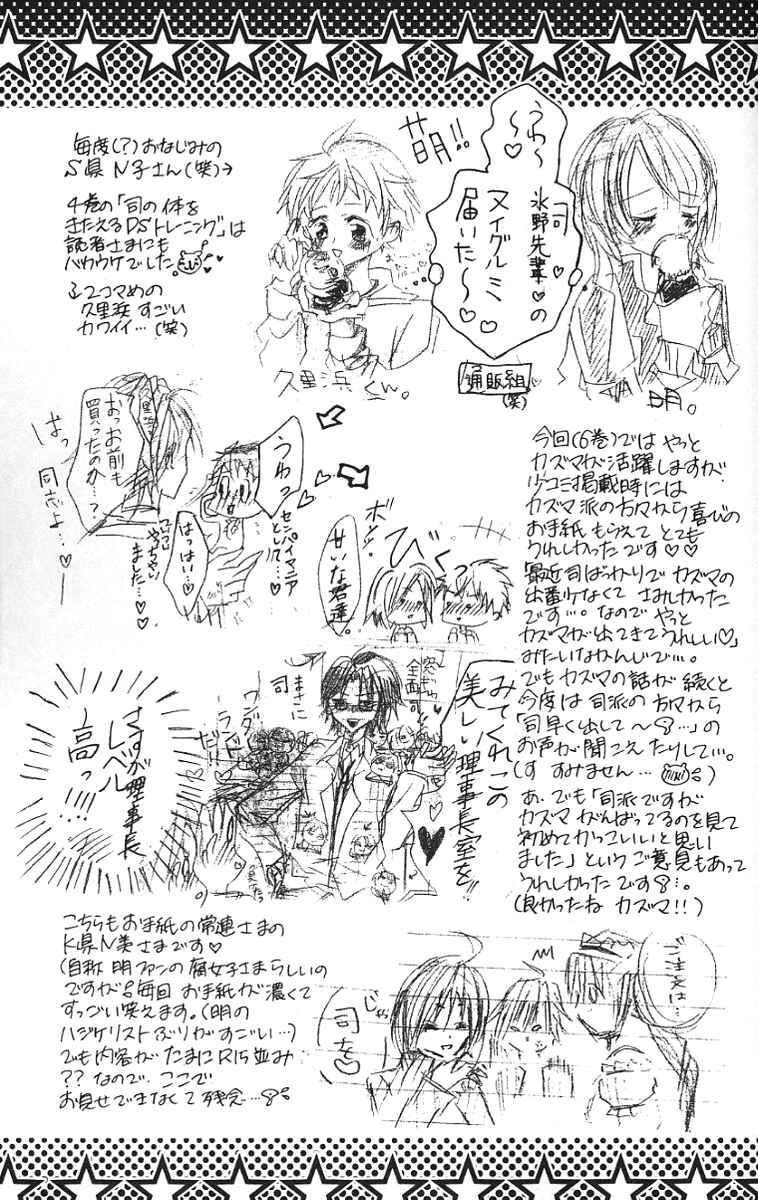 毎度(?)おなじみの
S県 N子さん(笑)→
4巻の「司の体を
きたえるDSトレーニング」は
読者さまにも
バカウケでした
↓2コマめの
久里浜 すごい
カワイイ…(笑)
萌!!
うわ〜〜♡
司
氷野先輩♡の
ヌイグルミ
届いた〜♡♡
久里浜くん。
通販組
(笑)
明。
おっお前も
買ったのか…?
ばっ
同志よ…♡
うわっ
センパイマニア
として…♡
はっはい…♡
やっちゃい
ました…♡
ボソ。
せいな君達。
びくっ
今回(6巻)では やっと
カズマが活躍しますが
ツウコミ掲載時には
カズマ派の方々から喜びの
お手紙もらえて とても
うれしかったです♡♡
最近司ばっかりで カズマの
出番がなくて さみしかった
です…。なので やっと
カズマが出てきてうれしい♡
みたいなかんじで…。
でもカズマの話が続くと
今度は 司派の方々から
「司早く出して〜…」の
お声が聞こえたりして…。
(す すみません…)
あ、でも「司派ですが
カズマ がんばってるのを見て
初めてかっこいいと思い
ました」という ご意見もあって
うれしかったです…。
(良かったね カズマ!!)
「みてくれこの
美しい理事長室を!!
全面司
まさに
司
ワンダー
ランド
だ!!
さすが理事長
レベル
高っ!!!!
こちらもお手紙の常連さまの
K県N美さまです♡
(自称 明ファンの腐女子さまらしいの
ですが 毎回 お手紙が濃くて
すっごい笑えます。(明の
ハジケリストぶりがすごい…)
でも内容が たまにR15並み
??なので、ここで
お見せできなくて残念…
ご注文は…
じゃ
司を♡